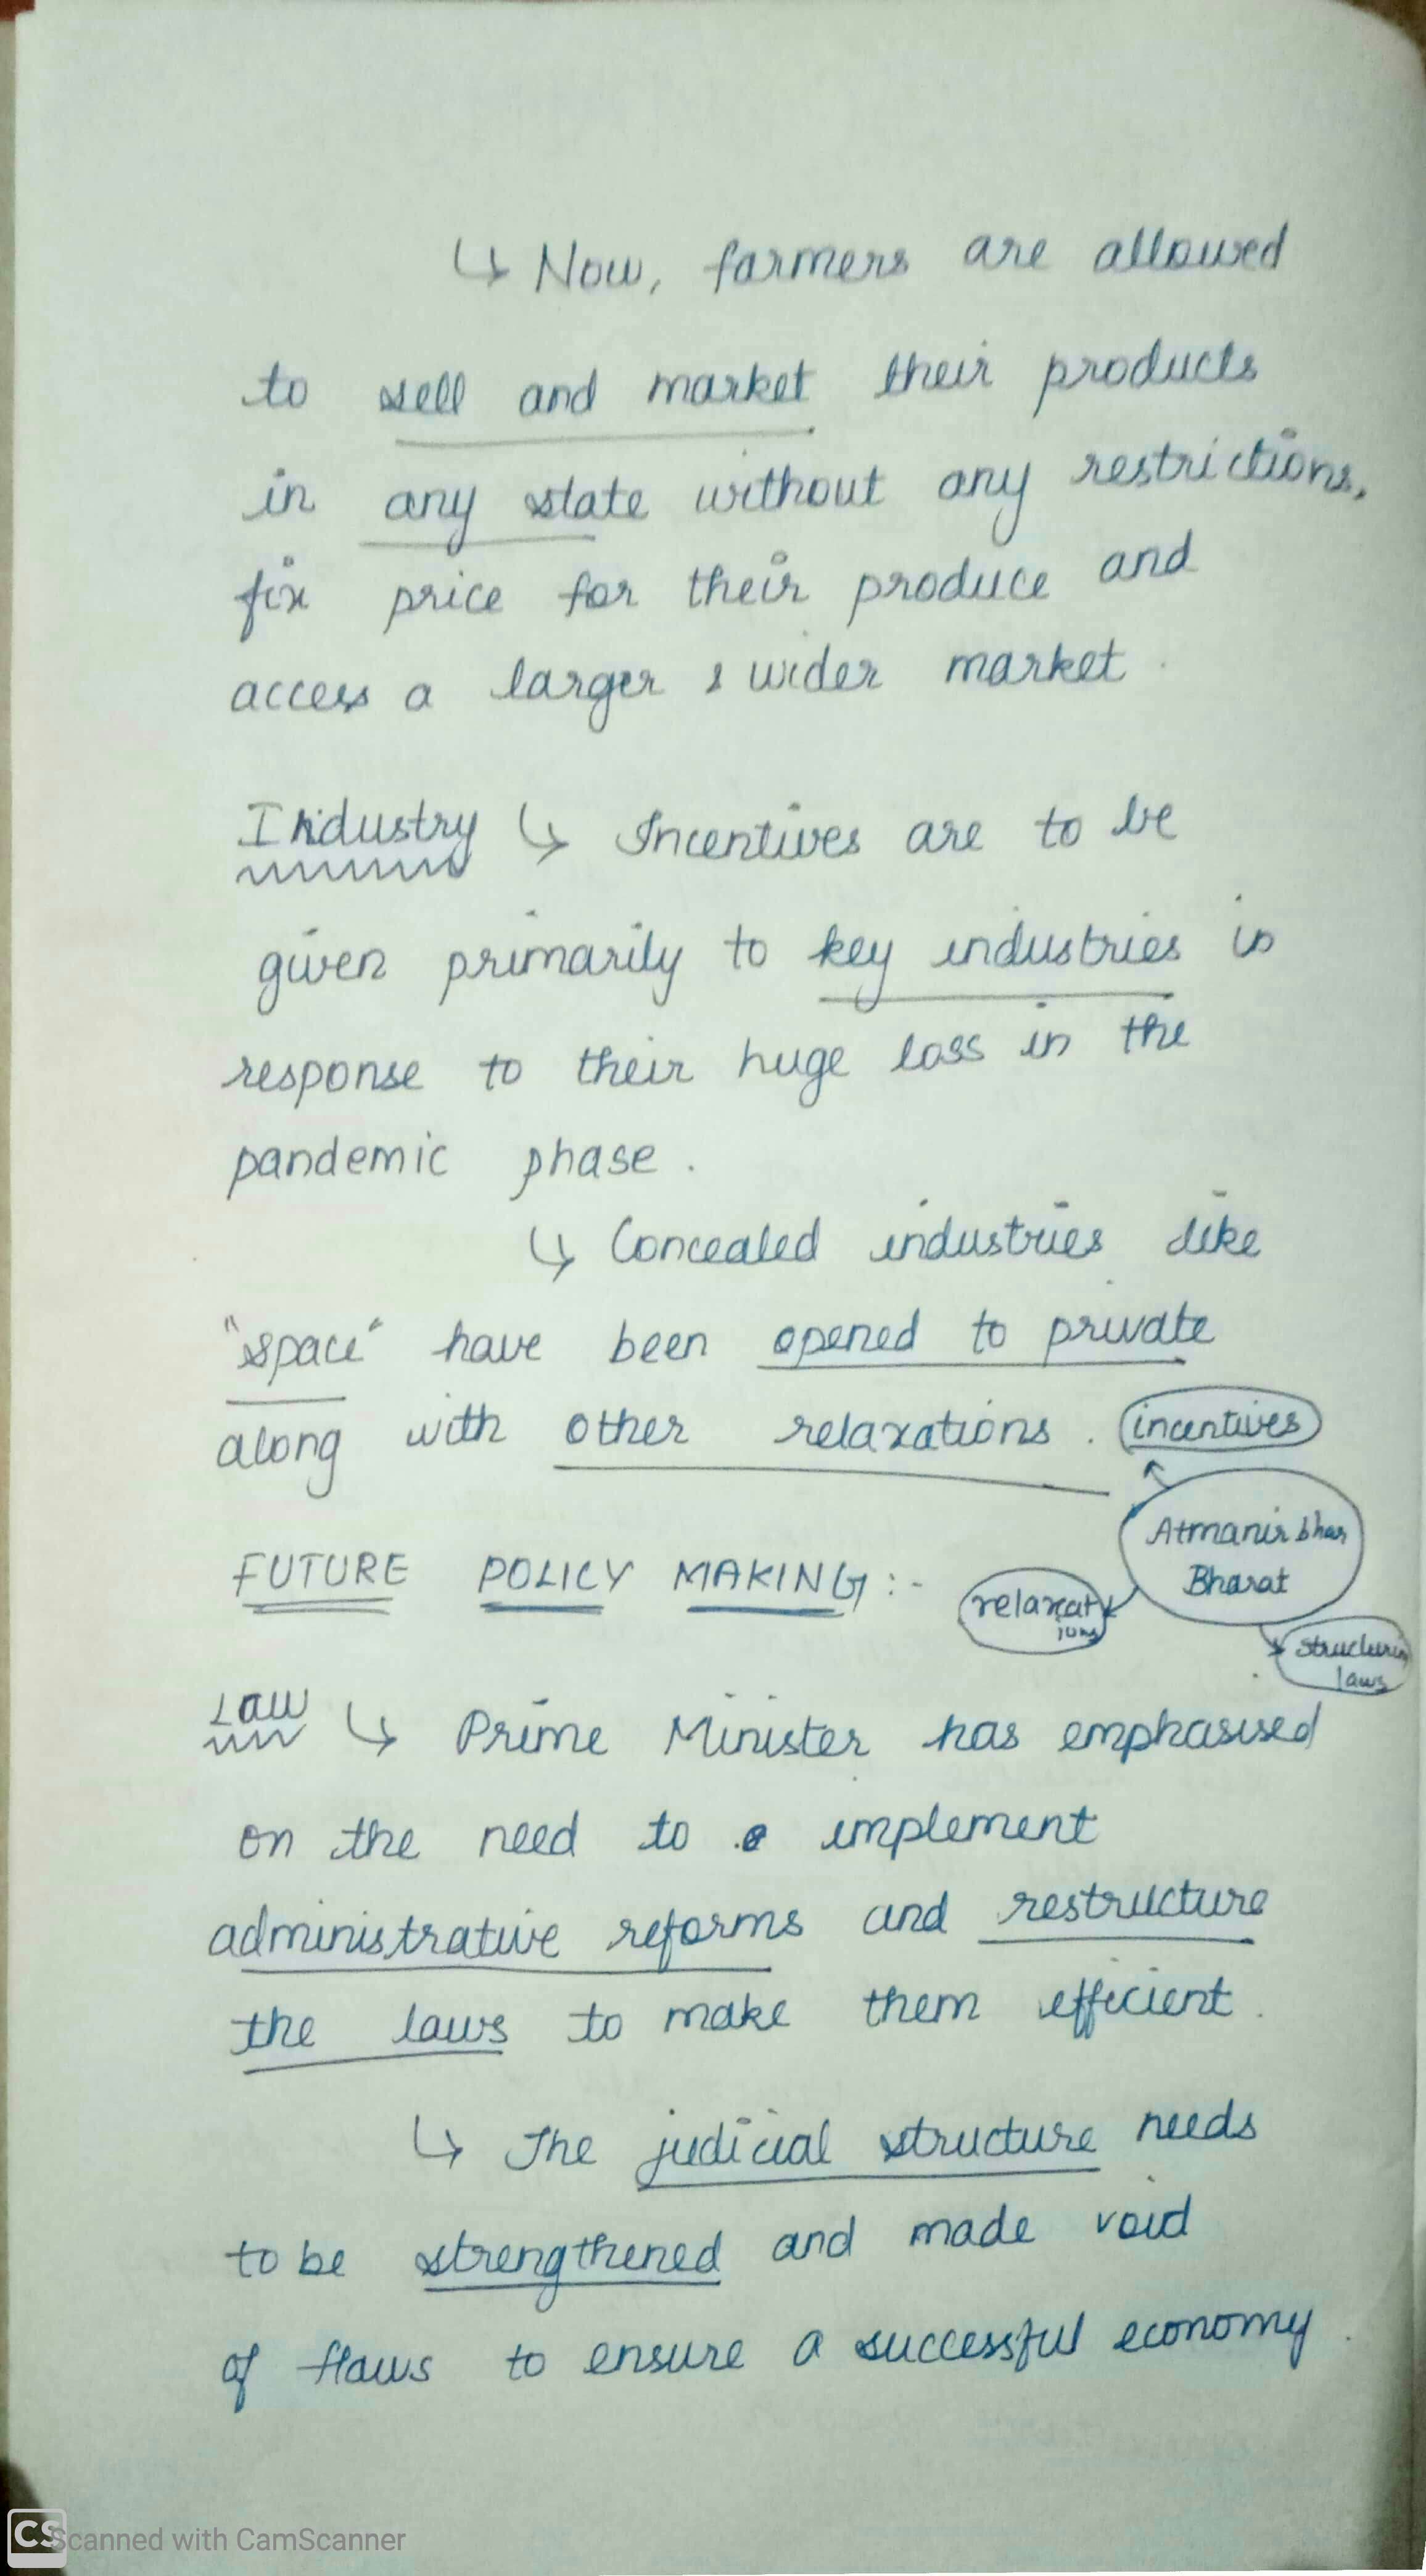 ↳ Now, farmers are allowed
to sell and market their products
in any state without any restrictions,
fix price for their produce and
access a larger & wider market.
Industry ↳ Incentives are to be
given primarily to key industries in
response to their huge loss in the
pandemic phase.
↳ Concealed industries like
"space" have been opened to private
along with other relaxations.
incentives
Atmanirbhar
Bharat
relaxat
ions
structurin
laws
FUTURE POLICY MAKING :-
Law ↳ Prime Minister has emphasised
on the need to implement
administrative reforms and restructure
the laws to make them efficient.
↳ The judicial structure needs
to be strengthened and made void
of flaws to ensure a successful economy.
CS Scanned with CamScanner